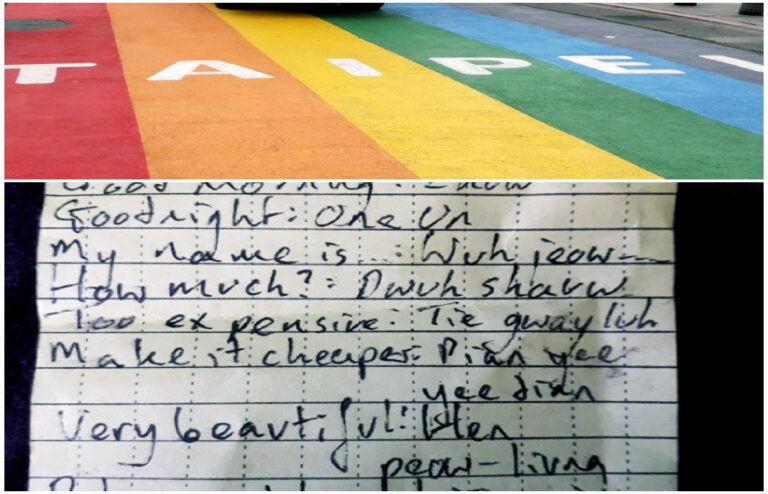 TAIPEI
Good morning:
Goodnight: One Un
My name is...: Wuh jeow---
How much?: Dwuh shauw
Too expensive: Tie gway luh
Make it cheaper: Pian yee
yee dian
Very beautiful: Hen
peow-liung